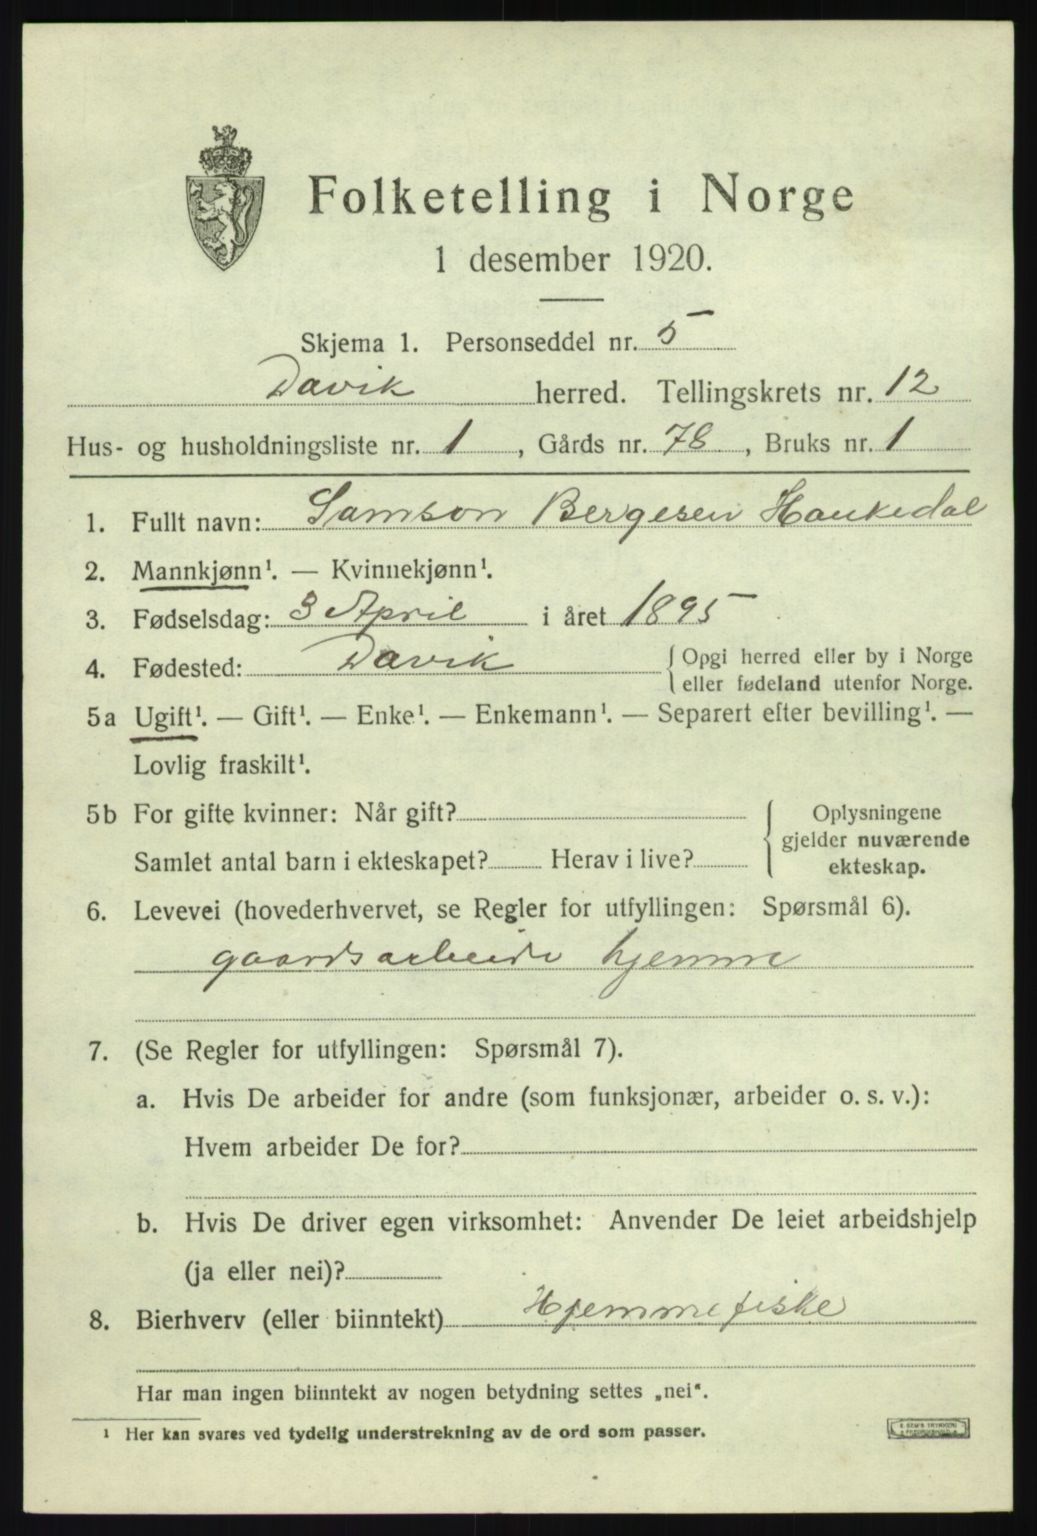 Folketelling i Norge
1 desember 1920.
Skjema 1. Personseddel nr. 5
Davik herred. Tellingskrets nr. 12
Hus- og husholdningsliste nr. 1, Gårds nr. 78, Bruks nr. 1
1. Fullt navn: Samson Bergesen Haukedal
2. Mannkjønn¹. — Kvinnekjønn¹.
3. Fødselsdag: 3 April i året 1895
4. Fødested: Davik { Opgi herred eller by i Norge
eller fødeland utenfor Norge.
5a Ugift¹. — Gift¹. — Enke¹. — Enkemann¹. — Separert efter bevilling¹. —
Lovlig fraskilt¹.
5b For gifte kvinner: Når gift?
Samlet antal barn i ekteskapet? Herav i live?
{ Oplysningene
gjelder nuværende
ekteskap.
6. Levevei (hovederhvervet, se Regler for utfyllingen: Spørsmål 6).
gaardsarbeide hjemme
7. (Se Regler for utfyllingen: Spørsmål 7).
a. Hvis De arbeider for andre (som funksjonær, arbeider o. s. v.):
Hvem arbeider De for?
b. Hvis De driver egen virksomhet: Anvender De leiet arbeidshjelp
(ja eller nei)?
8. Bierhverv (eller biinntekt) Hjemmefiske
Har man ingen biinntekt av nogen betydning settes „nei“.
¹ Her kan svares ved tydelig understrekning av de ord som passer.